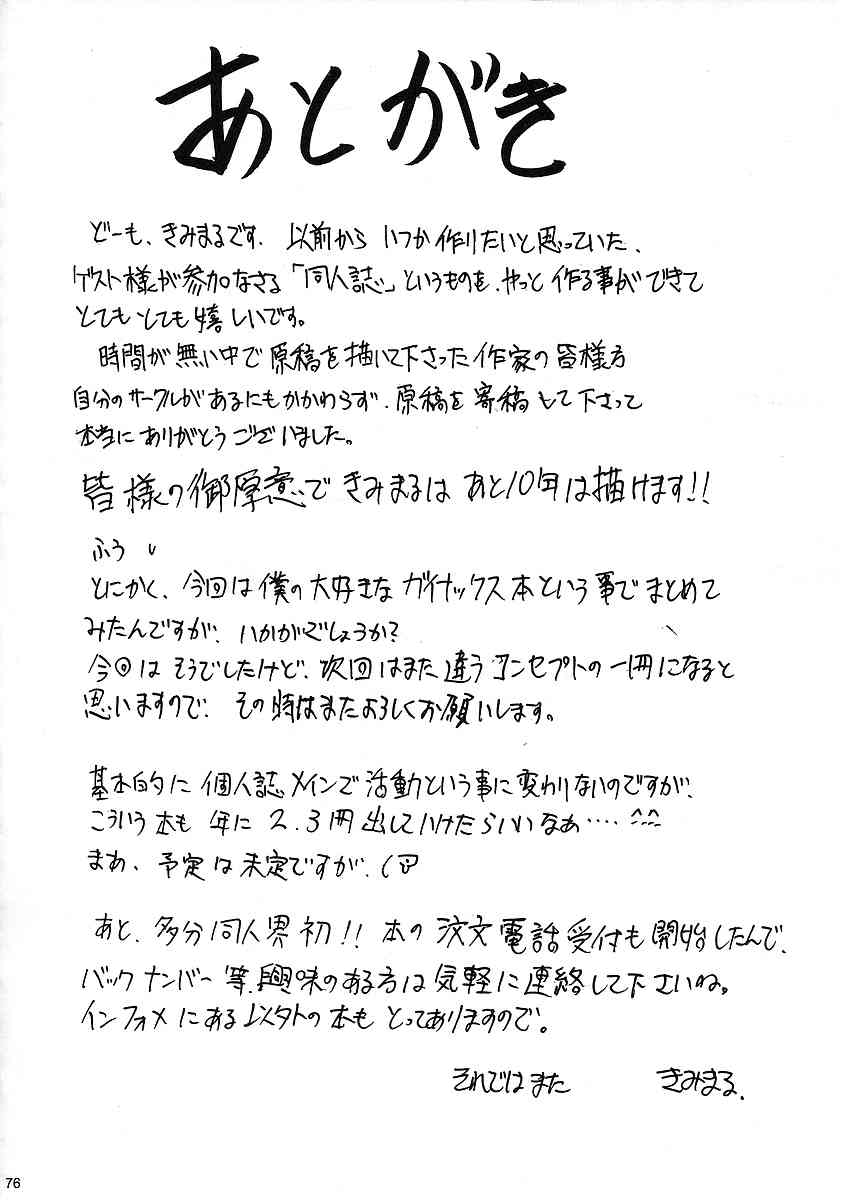 あとがき
どーも、きみまるです。以前からいつか作りたいと思っていた、
ゲスト様が参加なさる「同人誌」というものを、やっと作る事ができて
とてもとても嬉しいです。
時間が無い中で原稿を描いて下さった作家の皆様方
自分のサークルがあるにもかかわらず、原稿を寄稿して下さって
本当にありがとうございました。
皆様の御厚意できみまるはあと10年は描けます!!
ふう
とにかく、今回は僕の大好きなガイナックス本という事でまとめて
みたんですが、いかがでしょうか?
今回はそうでしたけど、次回はまた違うコンセプトの一冊になると
思いますので、その時はまたよろしくお願いします。
基本的に個人誌メインで活動という事に変わりないのですが、
こういう本も年に2.3冊出していけたらいいなあ‥‥ ^^
まあ、予定は未定ですが、(
あと、多分同人界初!! 本の注文電話受付も開始したんで、
バックナンバー等、興味のある方は気軽に連絡して下さいね。
インフォメにある以外の本もとってありますので。
それではまた きみまる.
76